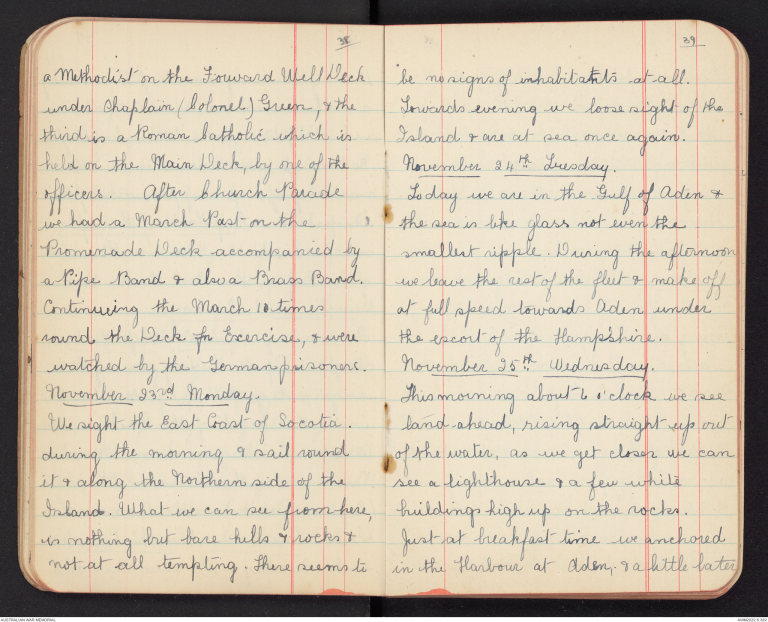 38
a Methodist on the Forward Well Deck
under Chaplain (Colonel) Green, & the
third is a Roman Catholic which is
held on the Main Deck, by one of the
officers. After Church Parade
we had a March Past on the
Promenade Deck accompanied by
a Pipe Band & also a Brass Band.
Continuing the March 10 times
round the Deck for Exercise, & were
watched by the German prisoners.
November 23rd Monday.
We sight the East Coast of Socotia.
during the morning & sail round
it & along the Northern side of the
Island. What we can see from here,
is nothing but bare hills & rocks &
not at all tempting. There seems to
39
be no signs of inhabitants at all.
Towards evening we loose sight of the
Island & are at sea once again.
November 24th Tuesday.
Today we are in the Gulf of Aden &
the sea is like glass not even the
smallest ripple. During the afternoon
we leave the rest of the fleet & make off
at full speed towards Aden under
the escort of the Hampshire.
November 25th Wednesday.
This morning about 6 o'clock we see
land ahead, rising straight up out
of the water, as we get closer we can
see a lighthouse & a few white
buildings high up on the rocks.
Just at breakfast time we anchored
in the Harbour at Aden, & a little later
AUSTRALIAN WAR MEMORIAL